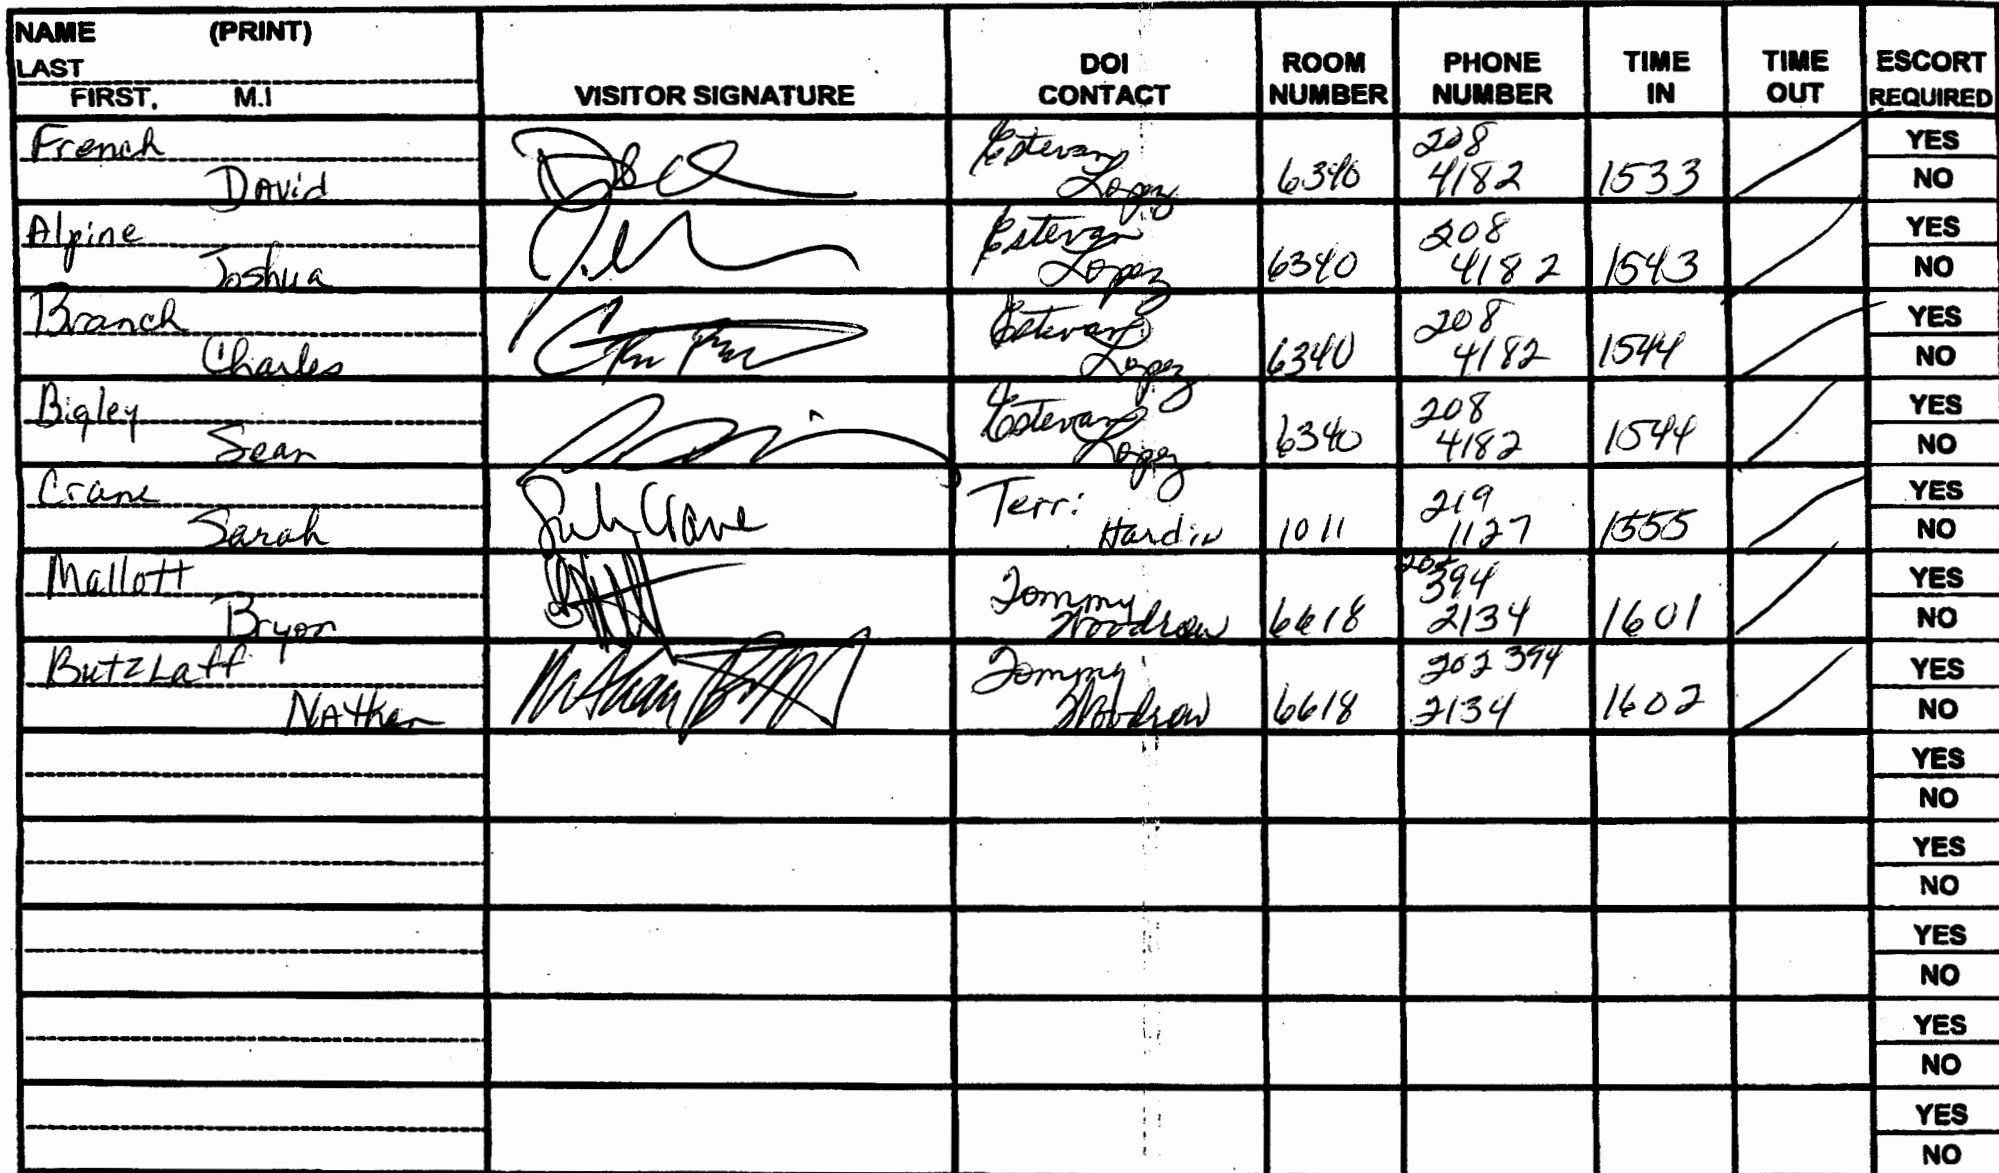 NAME (PRINT)
LAST
FIRST, M.I
VISITOR SIGNATURE
DOI CONTACT
ROOM NUMBER
PHONE NUMBER
TIME IN
TIME OUT
ESCORT REQUIRED
French
David
Estevan
Lopez
6340
208
4182
1533
YES
NO
Alpine
Joshua
Estevan
Lopez
6340
208
4182
1543
YES
NO
Branch
Charles
Estevan
Lopez
6340
208
4182
1544
YES
NO
Bigley
Sean
Estevan
Lopez
6340
208
4182
1544
YES
NO
Crane
Sarah
Crane
Terri
Hardin
1011
219
1127
1555
YES
NO
Mallott
Bryon
Tommy
Woodrow
6618
202
394
2134
1601
YES
NO
ButzLaff
NAthan
Nathan
Tommy
Woodrow
6618
202 394
2134
1602
YES
NO
YES
NO
YES
NO
YES
NO
YES
NO
YES
NO